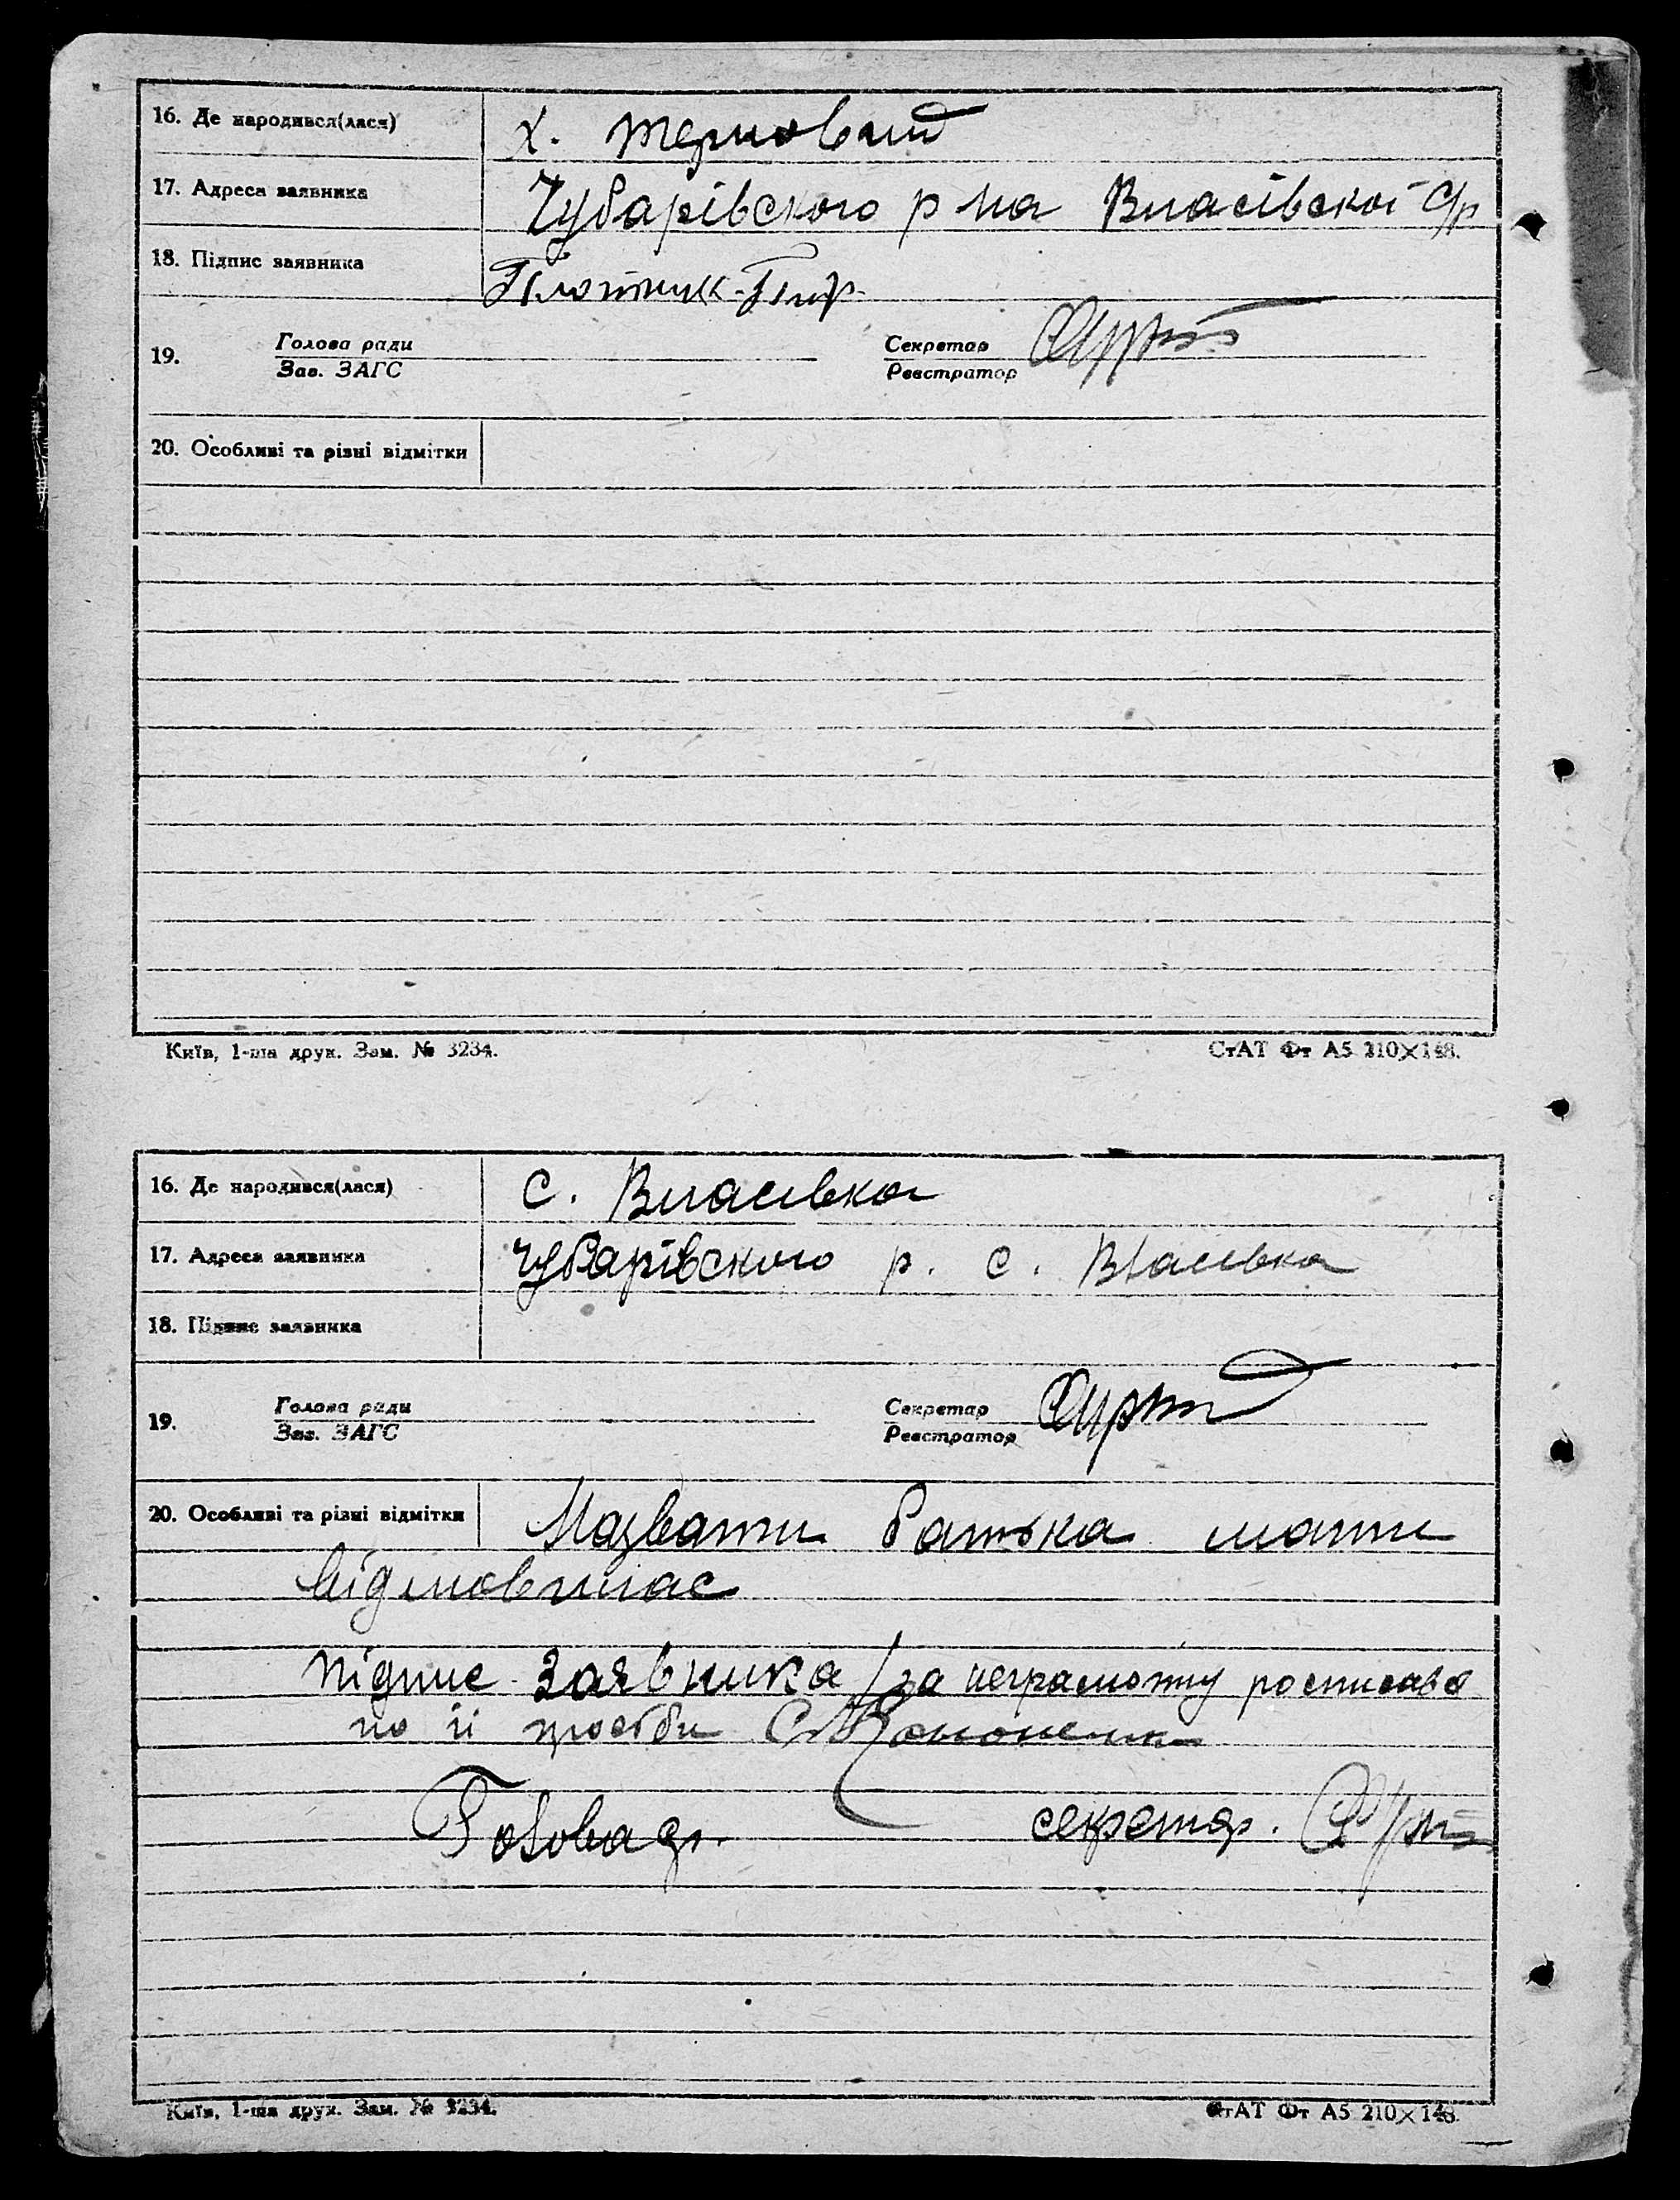 16. Де народився(лася) х. терновий
17. Адреса заявника Чубарівського р на Власівської С/р
18. Підпис заявника
19. Голова ради Секретар
Зав. ЗАГС Реєстратор
20. Особливі та різні відмітки
Київ, 1-ша друк. Зам. № 3234. СтАТ Фт А5 210×148.
16. Де народився(лася) с. Власівка
17. Адреса заявника Чубарівського р. с. Власівка
18. Підпис заявника
19. Голова ради Секретар
Зав. ЗАГС Реєстратор
20. Особливі та різні відмітки Назвати батька мати
відмовилас
підпис заявника /за неграмотну росписався
по її просьби
Голова секретар.
Київ, 1-ша друк. Зам. № 3234. СтАТ Фт А5 210×148.